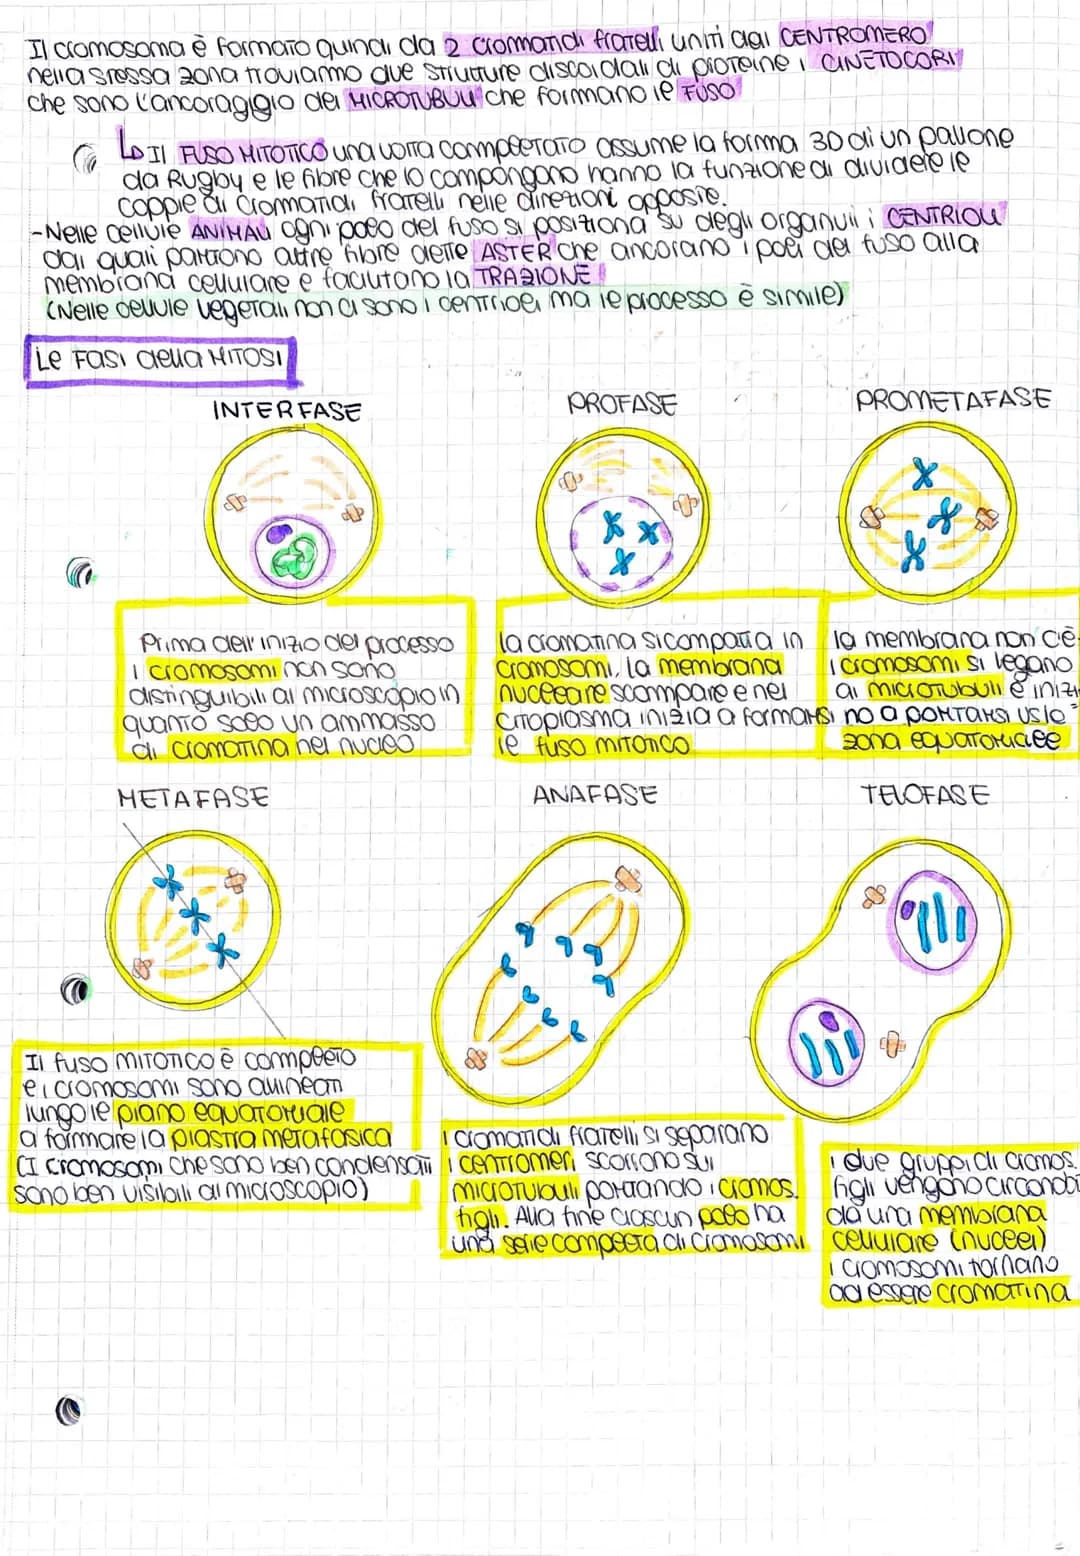 Il cromosoma è formato quindi da 2 cromatidi fratelli uniti dal CENTROMERO
nella stessa zona troviamo due strutture discoidali di proteine i CINETOCORI
che sono l'ancoraggio dei MICROTUBULI che formano il FUSO
↳ Il FUSO MITOTICO una volta completato assume la forma 3D di un pallone
da Rugby e le fibre che lo compongono hanno la funzione di dividere le
coppie di cromatidi fratelli nelle direzioni opposte.
-Nelle cellule ANIMALI ogni polo del fuso si posiziona su degli organuli i CENTRIOLI
dai quali partono altre fibre dette ASTER che ancorano i poli del fuso alla
membrana cellulare e facilitano la TRAZIONE
(Nelle cellule vegetali non ci sono i centrioli ma il processo è simile)
Le FASI della MITOSI
INTERFASE
PROFASE
PROMETAFASE
Prima dell'inizio del processo
i cromosomi non sono
distinguibili al microscopio in
quanto solo un ammasso
di cromatina nel nucleo
la cromatina si compatta in
cromosomi, la membrana
nucleare scompare e nel
citoplasma inizia a formarsi
il fuso mitotico
la membrana non c'è
i cromosomi si legano
ai microtubuli e inizia
no a portarsi
zona equatoriale
METAFASE
ANAFASE
TELOFASE
Il fuso mitotico è completo
e i cromosomi sono allineati
lungo il piano equatoriale
a formare la piastra metafasica
(I cromosomi che sono ben condensati
sono ben visibili al microscopio)
i cromatidi fratelli si separano
i centromeri scorrono sui
microtubuli portando i cromos.
figli. Alla fine ciascun polo ha
una serie completa di cromosomi
i due gruppi di cromos.
figli vengono circondati
da una membrana
cellulare (nuclei)
i cromosomi tornano
ad essere cromatina